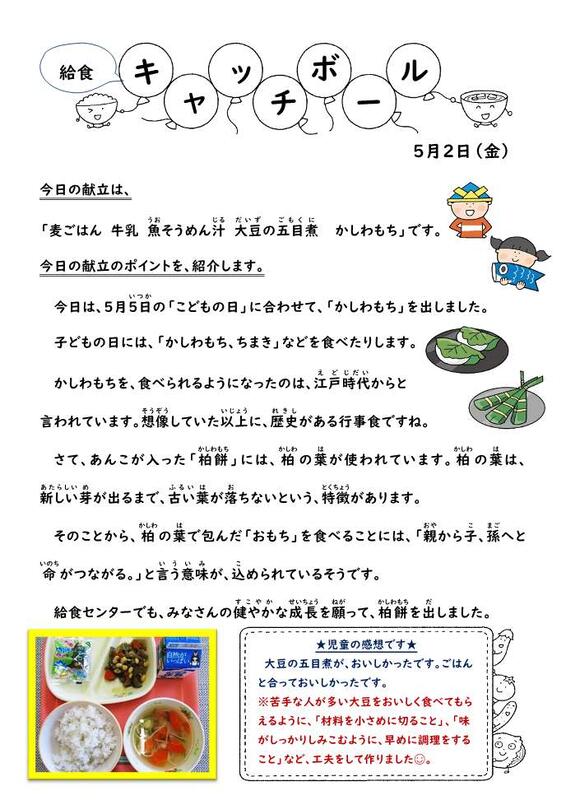 給食
キャッチボール
5月2日(金)
今日の献立は、
「麦ごはん 牛乳 魚そうめん汁 大豆の五目煮 かしわもち」です。
今日の献立のポイントを、紹介します。
今日は、5月5日の「こどもの日」に合わせて、「かしわもち」を出しました。
子どもの日には、「かしわもち、ちまき」などを食べたりします。
かしわもちを、食べられるようになったのは、江戸時代からと
言われています。想像していた以上に、歴史がある行事食ですね。
さて、あんこが入った「柏餅」には、柏の葉が使われています。柏の葉は、
新しい芽が出るまで、古い葉が落ちないという、特徴があります。
そのことから、柏の葉で包んだ「おもち」を食べることには、「親から子、孫へと
命がつながる。」と言う意味が、込められているそうです。
給食センターでも、みなさんの健やかな成長を願って、柏餅を出しました。
★児童の感想です★
大豆の五目煮が、おいしかったです。ごはん
と合っておいしかったです。
※苦手な人が多い大豆をおいしく食べてもら
えるように、「材料を小さめに切ること」、「味
がしっかりしみこむように、早めに調理をする
こと」など、工夫をして作りました☺。